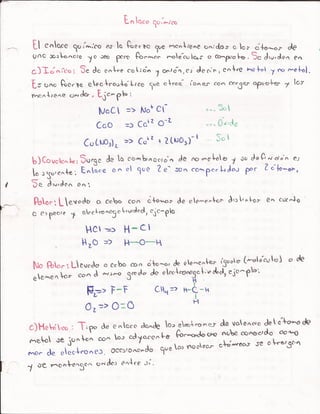 Enlace químico
El enlace químico es la fuerza que mantiene unidos a los átomos de
una sustancia y es para formar moléculas o compuestos. Se dividen en
a) Iónico: Se da entre catión y anión, es decir, entre metal y no metal.
Es una fuerza electrostática que atrae iones con cargas opuestas y los
mantiene unidos. Ejemplo:
NaCl => Na+ Cl- Sal
CaO => Ca+2 O-2
Cu(NO3)2 => Cu+2 + 2(NO3)-1 Sal
b) Covalente: Surge de la combinación de no metales y su definición es
la siguiente: Enlace en el que 2e- son compartidos por 2 átomos.
Se dividen en:
Polar: Llevado a cabo con átomos de elementos distintos en cuanto
a especie y electronegatividad, ejemplo
HCl => H-Cl
H2O => H-O-H
No Polar: Llevado a cabo con átomos de elementos iguales (molécula) o de
elementos con el mismo grado de electronegatividad, ejemplo:
F2 => F-F
CH4 => H-C-H
H
H
O2 => O=O
c) Metálico: Tipo de enlace donde los electrones de valencia del átomo de
metal se juntan con los adyacentes formando una nube conocida como
mar de electrones, ocasionando que los núcleos atómicos se atraigan
y se mantengan unidos entre sí.